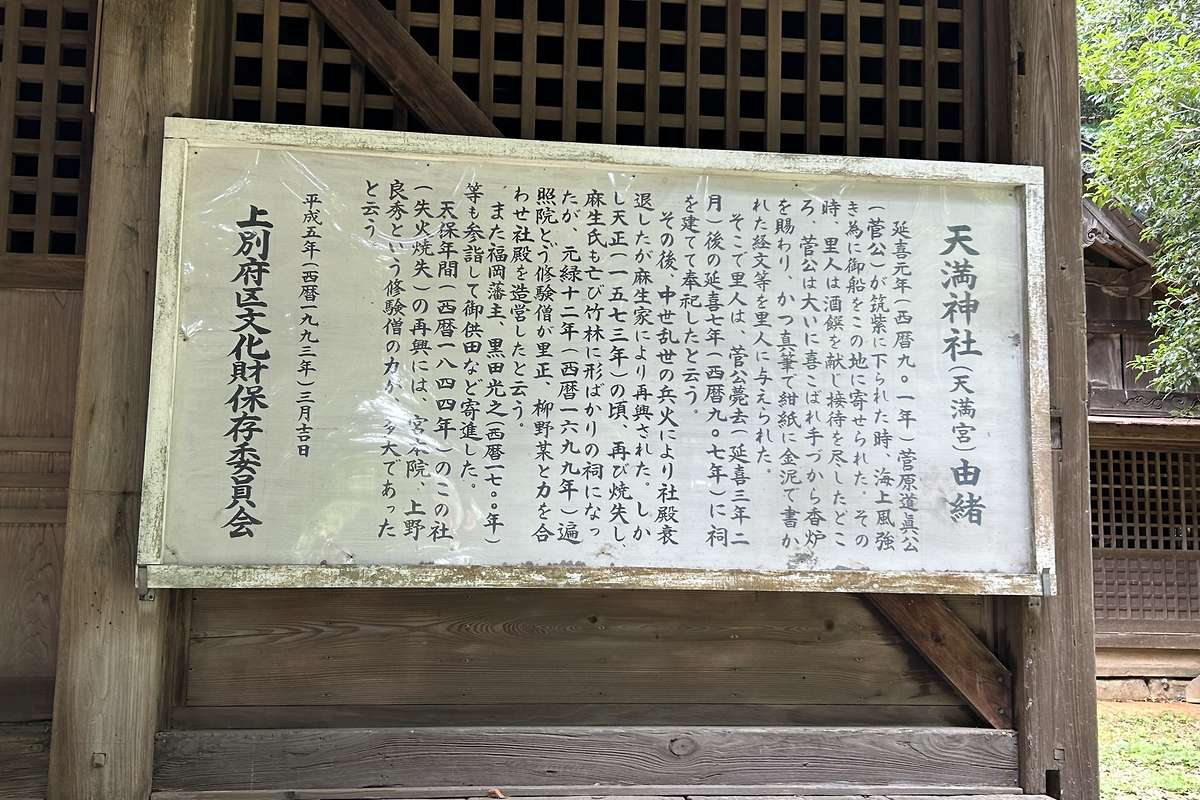 天満神社(天満宮)由緒
延喜元年(西暦九〇一年)菅原道眞公
(菅公)が筑紫に下られた時、海上風強
き為に御船をこの地に寄せられた。その
時、里人は酒饌を献じ接待を尽したとこ
ろ、菅公は大いに喜こばれ手づから香炉
を賜わり、かつ真筆で紺紙に金泥で書か
れた経文等を里人に与えられた。
そこで里人は、菅公薨去(延喜三年二
月)後の延喜七年(西暦九〇七年)に祠
を建てて奉祀したと云う。
その後、中世乱世の兵火により社殿衰
退したが麻生家により再興された。しか
し天正(一五七三年)の頃、再び焼失し、
麻生氏も亡び竹林に形ばかりの祠になっ
たが、元緑十二年(西暦一六九九年)遍
照院とう修験僧が里正、柳野某と力を合
わせ社殿を造営したと云う。
また福岡藩主、黒田光之(西暦一七〇〇年)
等も参詣して御供田など寄進した。
天保年間(西暦一八四四年)のこの社
(失火焼失)の再興には、宮本院、上野
良秀という修験僧の力が、多大であった
と云う。
平成五年(西暦一九九三年)三月吉日
上別府区文化財保存委員会